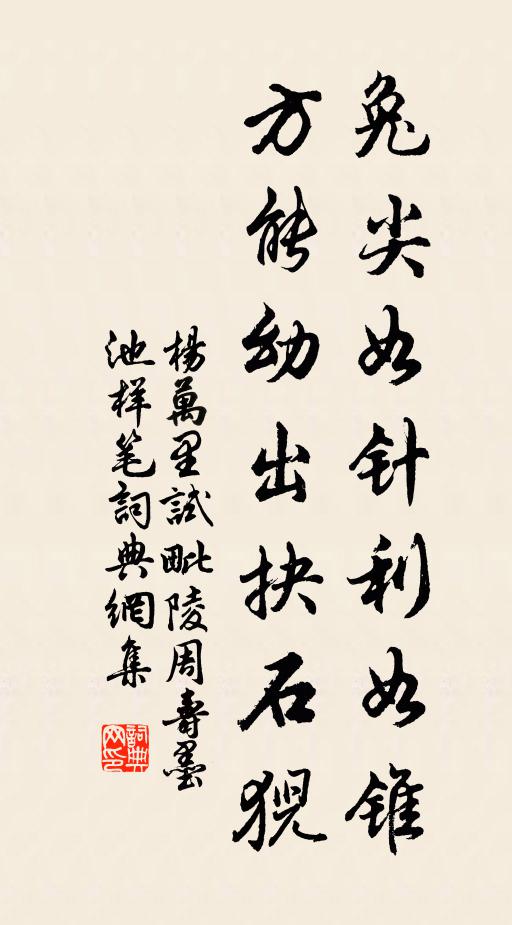 兔尖如针利如锥
方能幼出抉石猊
楊萬里試毗陵周壽墨
池样笔詞典網集
詞典網印